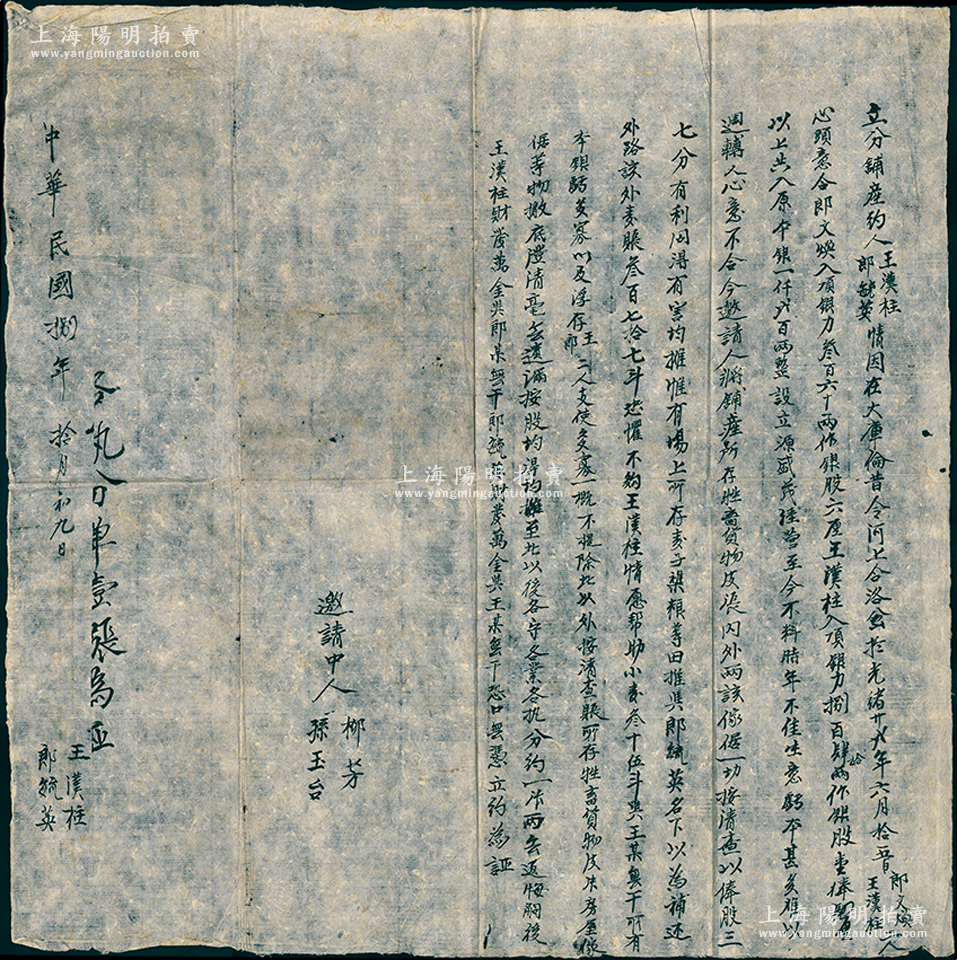 上海陽明拍賣
www.yangmingauction.com
立分鋪產約人王漢柱郎毓英情因在大庫倫昔令河上合洛會於光緒廿八年六月拾五日郎文煥王漢柱二人
心頭意合郎文煥入頂銀力叁百六十兩作銀股六厘王漢柱入頂銀力捌百肆拾兩作銀股壹俸四厘
以上共入原本銀一仟弍百兩整設立源盛茂經營至今不料時年不佳生意虧本甚多難以
週轉人心意不合今邀請人將鋪產所存牲畜貨物皮張內外兩該傢俱一切按清查以俸股三
七分有利同得有害均攤惟有場上所存麥子渠糧等田推與郎毓英名下以為補还
外路該外麦賬叁百七拾七斗恐懼不夠王漢柱情愿帮助小麦叁十伍斗與王某無干所有
本銀虧多寡以及浮存王郎二人支使多寡一概不提除此以外按清查賬所存牲畜貨物皮张房屋傢
俱等物撤底澄清毫無遺漏按股均得均攤至此以後各守各業各执分約一张兩無返悔嗣後
王漢柱財發萬金與郎某無干郎毓英財發萬金與王某無干恐口無憑立約為証
邀請中人
柳芳
孫玉台
上海陽明拍賣
www.yangmingauction.com
王漢柱
郎毓英
中華民國捌年拾月初九日
上海陽明拍賣
www.yangmingauction.com